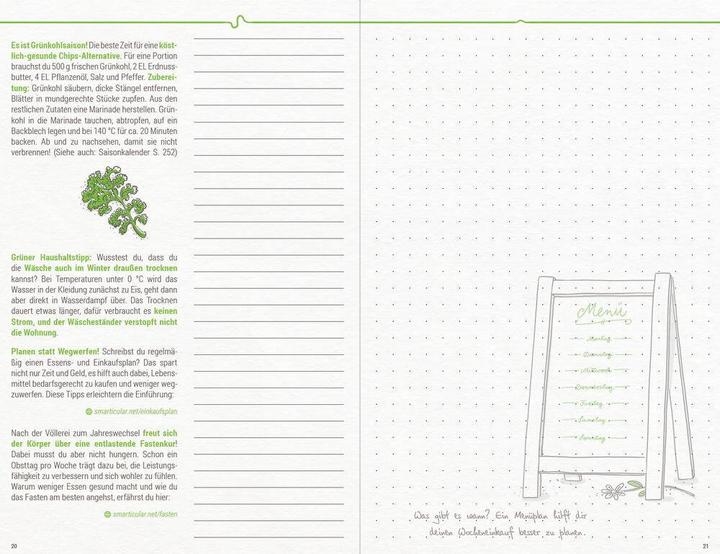 Es ist Grünkohlsaison! Die beste Zeit für eine köst-
lich-gesunde Chips-Alternative. Für eine Portion
brauchst du 500 g frischen Grünkohl, 2 EL Erdnuss-
butter, 4 EL Pflanzenöl, Salz und Pfeffer. Zuberei-
tung: Grünkohl säubern, dicke Stängel entfernen,
Blätter in mundgerechte Stücke zupfen. Aus den
restlichen Zutaten eine Marinade herstellen. Grün-
kohl in die Marinade tauchen, abtropfen, auf ein
Backblech legen und bei 140 °C für ca. 20 Minuten
backen. Ab und zu nachsehen, damit sie nicht
verbrennen! (Siehe auch: Saisonkalender S. 252)
Grüner Haushaltstipp: Wusstest du, dass du
die Wäsche auch im Winter draußen trocknen
kannst? Bei Temperaturen unter 0 °C wird das
Wasser in der Kleidung zunächst zu Eis, geht dann
aber direkt in Wasserdampf über. Das Trocknen
dauert etwas länger, dafür verbraucht es keinen
Strom, und der Wäscheständer verstopft nicht
die Wohnung.
Planen statt Wegwerfen! Schreibst du regelmä-
ßig einen Essens- und Einkaufsplan? Das spart
nicht nur Zeit und Geld, es hilft auch dabei, Lebens-
mittel bedarfsgerecht zu kaufen und weniger weg-
zuwerfen. Diese Tipps erleichtern die Einführung:
smarticular.net/einkaufsplan
Nach der Völlerei zum Jahreswechsel freut sich
der Körper über eine entlastende Fastenkur!
Dabei musst du aber nicht hungern. Schon ein
Obsttag pro Woche trägt dazu bei, die Leistungs-
fähigkeit zu verbessern und sich wohler zu fühlen.
Warum weniger Essen gesund macht und wie du
das Fasten am besten angehst, erfährst du hier:
smarticular.net/fasten
20
Menü
Montag
Dienstag
Mittwoch
Donnerstag
Freitag
Samstag
Sonntag
Was gibt es wann? Ein Menüplan hilft dir
deinen Wocheneinkauf besser zu planen.
21